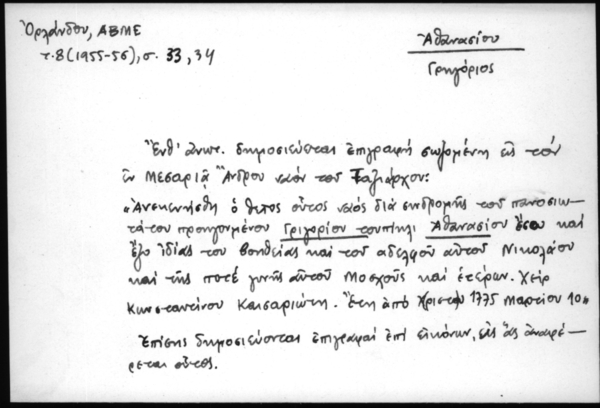 Ὀρλάνδου, ΑΒΜΕ
τ. 8 (1955-56), σ. 33, 34
Ἀθανασίου
Γρηγόριος
Ἔνθ' ἀνωτ. δημοσιεύεται ἐπιγραφή σωζομένη εἰς τόν
ἐν Μεσαριᾷ Ἄνδρου ναόν τοῦ Ταξιάρχου:
"Ἀνεκενήσθη ὁ θεῖος οὗτος ναός διά συνδρομῆς τοῦ πανοσιω-
τάτου προηγουμένου Γριγορίου τουπίκλι Ἀθανασίου ἔσω καί
ἔξω ἰδίας του βοηθείας καί τοῦ ἀδελφοῦ αὐτοῦ Νικολάου
καί τῆς ποτέ γυνῆς αὐτοῦ Μοσχοῦς καί ἑτέρων. Χείρ
Κωνσταντίνου Καισαριώτη. Ἔτη ἀπό Χριστοῦ 1775 Μαρτίου 10"
Ἐπίσης δημοσιεύονται ἐπιγραφαί ἐπί εἰκόνων, εἰς ἅς ἀναφέ-
ρεται οὗτος.